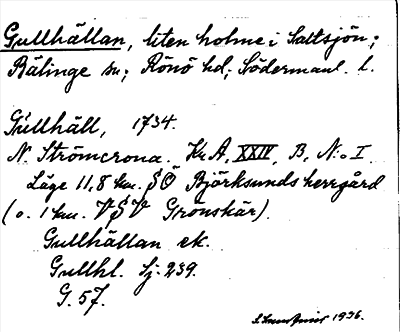 Gullhällan, liten holme i Saltsjön;
Bälinge sn; Rönö hd; Södermanl. l.
Gullhäll, 1734.
N. Strömcrona. Kr.A. XXIV, B, N:o I.
Läge 11,8 km. SÖ Björksunds herrgård
(o. 1 km. VSV Grönskär).
Gullhällan ek.
Gullhl. Sj. 239.
G. 57.
1936.